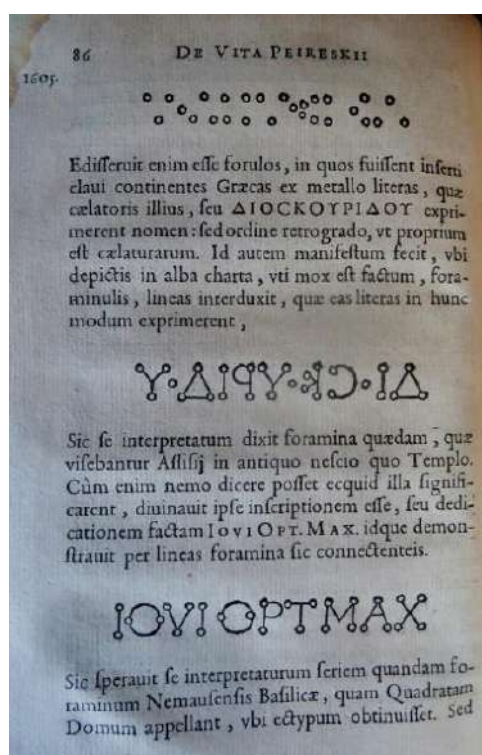 86 DE VITA PEIRESKII
1605.
Edisseruit enim esse forulos, in quos fuissent inserti
claui continentes Græcas ex metallo literas, quæ
cælatoris illius, seu ΔΙΟΣΚΟΥΡΙΔΟΥ expri-
merent nomen: sed ordine retrogrado, vt proprium
est cælaturarum. Id autem manifestum fecit, vbi
depictis in alba charta, vti mox est factum, fora-
minulis, lineas interduxit, quæ eas literas in hunc
modum exprimerent,
Sic se interpretatum dixit foramina quædam, quæ
visebantur Assisij in antiquo nescio quo Templo.
Cùm enim nemo dicere posset ecquid illa signifi-
carent, diuinauit ipse inscriptionem esse, seu dedi-
cationem factam IOVI OPT. MAX. idque demon-
strauit per lineas foramina sic connectenteis.
IOVI OPTMAX
Sic sperauit se interpretaturum seriem quandam fo-
raminum Nemausensis Basilicæ, quam Quadratam
Domum appellant, vbi ectypum obtinuisset. Sed